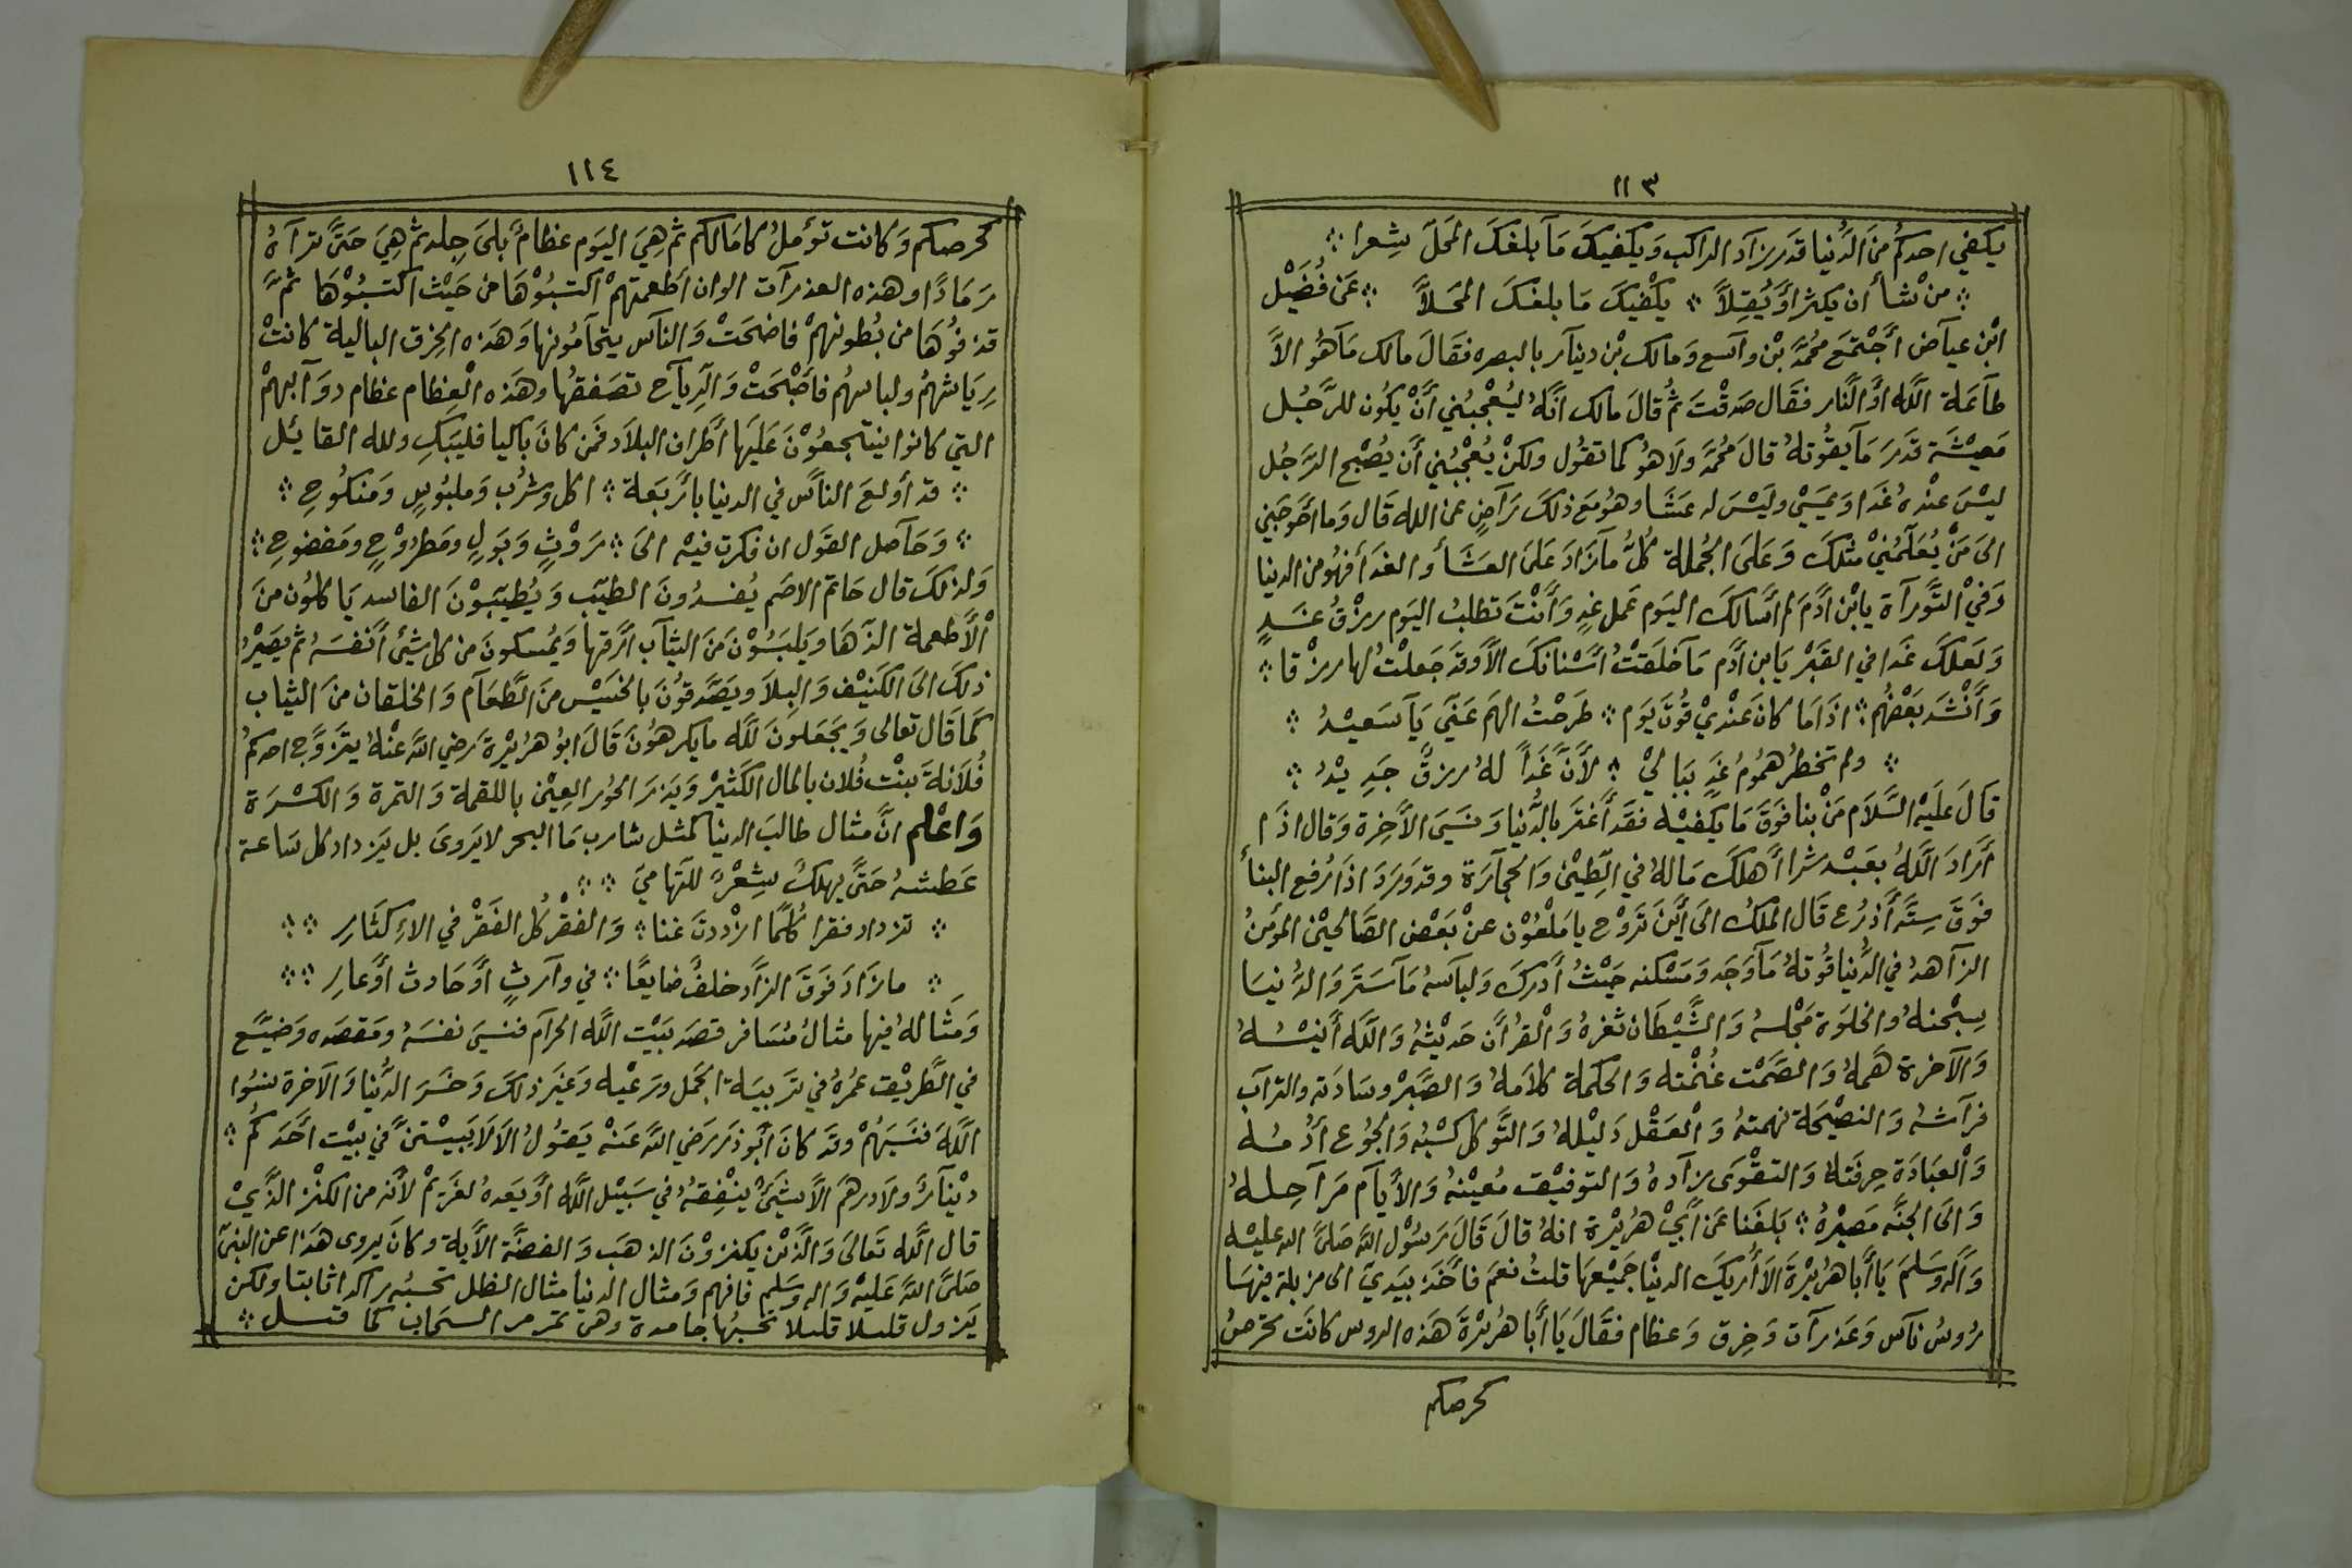 ١١٣
يكفي احدكم من الدُّنيا قدر زاد الراكب وَيكفيكَ مَا بلغكَ المَحَلّ شِعرا
من شأ ان يكثر اوَ يُقِلاَّ يكْفيكَ مَا بلغكَ المَحَلاَّ عَن فُضَيْل
ابْن عياض أجْتمَع محُمَّد بْن واسع وَمالك بْن دينار بالبصره فقَالَ مالك مَا هُوَ الاَّ
طاعَة اللَّه اوَ النَّار فقَال صَدقْتَ ثم قالَ مالك انَّهُ ليُعْجبُني أَنْ يكُون للرَّجُل
مَعيْشَة قدَر مَا يقُوتهُ قالَ محُمَّد وَلاَ هوُ كما تقوُل ولكنْ يُعْجبُني أَن يُصْبح الرَّجُل
ليْسَ عنْدهُ غَدا وَيمسَيْ وليَسْ له عشَا وهوُ مَع ذلكَ رَاضٍ عن الله قَال وَما أحَوجَني
الىَ مَنْ يُعَلّمُنيْ مثلكَ وَعَلىَ الجُملة كلُّ مآ زَادَ عَلىَ العَشَأ والغدَا فهُو من الدنيا
وَفيْ التَّورآة يا بْن ادَمَ لم أسَالكَ اليَوم عَمل غدٍ وَأنْتَ تطلبُ اليَوم رزْقُ غَدٍ
وَلعَلكَ غَدا في القَبْر يَا بن ادَم مَا خلَقتْ أسْنانكَ الاَّ وَقدَ جَعلْتُ لها رزْقا
وَأَنْشدَ بَعْضُهُم اذَا مَا كانَ عنْديْ قُوتُ يَوم طَرحْتُ الهمَ عَنيّ يَا سَعيْدُ
ولم تخطرُ همُومُ غَدٍ بَباليْ لأنَّ غَداً لهُ رزقٌ جَدِيْدُ
قالَ علَيْه السَّلاَم مَنْ بنا فوَقَ مَا يَكفيْه فقدَ أغْترَ بالدُّنيا وَنسَيَ الأخِرة وَقال اذَم
أَرَادَ اللَّهُ بعَبْد شَرا أهلكَ مَالهُ في الطِّيْن وَالحجآرَة وقد وَرَدَ اذَا رُفع البنأ
فوَقَ سِتَّه أَذرُع قَال الملَكُ الىَ أَيْنَ تَرَوْح يا مَلعُوْن عنْ بَعْض الصَّالحيْن المؤمنُ
الزَآهدُ في الدُّنيا قوُتهُ مَا وَجَد وَمَسْكنه حَيْثُ أدركَ وَلباسهُ مَا سَتَرَ وَالدُّنيَا
سِجْنهُ والخلوَة مَجْلسهُ وَالشَّيْطَان ثغرهُ وَالْقرُآن حَديْثهُ وَاللَّه أنيْسُهُ
وَالآخرة همَهُ وَالصَمْت غُنْمته وَالحكمة كلاَمهُ وَالصَّبرْ وسَادَته والترآب
فرآشهُ وَالنصيْحَة نهمتهُ وَالعَقْل دَليْلهُ وَالتَّوكل كسْبُه وَالجوُع أدُمُه
وَالْعبَادَة حِرفتَهُ وَالتقْوَى زادهُ وَالتوفيْق مُعيْنهُ وَالأيآم مَرآحِلهُ
وَالىَ الجنَّه مَصيْرُهُ بَلغَنا عَن أَبيْ هُريْرة انهُ قالَ قَالَ رَسُوْل اللَّه صَلىَّ الله عليْه
وَآله وَسَلمَ يَا أبَا هرُيْرَةَ الاَ أُريكَ الدنْيا جَميْعهَا قلتُ نعَمَ فأخَذَ بيَديّ الى مزبلة فيْهَا
رُوسُ نآس وَعَذرآت وَخِرق وَعظام فقَالَ يَا أبَا هرُيْرةَ هَذه الروس كانَت تحَرصُ
كحرصكم
١١٤
كحرصكم وَكانت تؤملُ كامَالكم ثم هِيَ اليَوم عظامٌ بلىَ جِلد ثم هِيَ حَتىَّ ترآهُ
رَمَادًا وهذه العذرآت الوان أطعمتهمْ اكتسَبُوْهَا من حَيْث اكتسَبُوْهَا ثمَّ
قذفُوُهَا من بُطونهمْ فاضحَتْ وَالنآس يتحآمُونها وَهَذه الخِرق البالية كانتْ
رِيَاشهمُ ولباسهُم فأصْبحَتْ وَالرِّيآح تصَفقهُا وهَذه الْعِظام عظام دوَآبهمْ
التي كانوا ينتجعوُْنَ عَليَها أطرَاف البلاَد فمَن كانَ باكيا فليبَكِ ولله القائل
قد أولعَ الناَّس في الدنيا باَرَبَعَة اكل وشُرب وَملبُوسٍ وَمَنكوُحِ
وَحَآصل القوَل ان فكرت فيه الىَ رَوْثٍ وَبَولٍ ومَطروُحٍ ومَفضوحِ
وَلذلكَ قال حَاتم الاصَم يُفسدُونَ الطيّب وَيُطيّبوْنَ الفاسد يَاكلوُن منَ
الأطعمة الذّهَا وَيَلبَسُوْنَ منَ الثيآب أرَقهَا وَيمُسكونَ من كل شيْ أنفسَهُ ثم يَصيْرُ
ذلكَ الىَ الكنيْف وَالبلاَ ويَصَدّقوُنَ بالخسَيْس منَ الطَّعَآم وَالخلقان منَ الثياب
كمَا قَال تعالى وَيجَعَلونَ لله ما يكرهوُنَ قَالَ ابوُ هرُيْرة رَضي اللَّه عنْهُ يتزَوَّج احدكمُ
فُلاَنةَ بنْت فُلان بالمال الكثيْر وَيذَرَ الحوُر العِيْن باللقمة وَالتمرة وَالكسْرَة
وَاعْلم انَّ مثال طالبَ الدنيا كمثل شارب مَا البحر لا يَروىَ بل يَزداد كل سَاعة
عَطشهُ حَتىَّ يهلكُ شِعْرٌ للتهاميَ
تزداد فقرا كلمَّا ازْددتَ غنا وَالفقْر كُل الفَقْر في الاءِكثَارِ
ما زَادَ فوَقَ الزَّاد خلفٌ ضايعًا في وآرثٍ أوَ حَادث أوَ عارِ
وَمثَالهُ فيها مثالُ مُسَافر قصَدَ بَيْت اللَّه الحرآم فنسيَ نفسَهُ ومَقصَده وَضيَّع
في الطَّريْق عمُرهُ في تَربيَة الجمل ورَعيْه وَغَير ذلكَ وَخسَرَ الدُّنيا وَالآخرة نسُوا
اللَّهَ فنسَيَهُمْ وقدَ كانَ أَبُو ذَر رَضي اللَّه عَنْه يَقوُلُ الاَ لاَ يَبيْتنَّ في بيْت احَدَكمُ
ديْنآرٌ ولا درهمَ الاَّ شيَءٌ ينْفِقهُ في سَبيْل اللَّه أوَ يعَدهُ لغَريْم لأنه من الكنْز الذَّيْ
قال اللَّه تعَالىَ وَالَّذيْن يكنزوْنَ الذهَب وَالفضَّة الأية وكانَ يروى هَذا عن النبيّ
صَلىَّ اللَّه عَليْه وَاله وَسَلم فافهم وَمثال الدنيا مثال الظل تحسَبُه راكدا ثابتا ولكن
يَزول قليلا قليلا تحسبُها جامدة وهي تمر مر السحَاب كما قيل